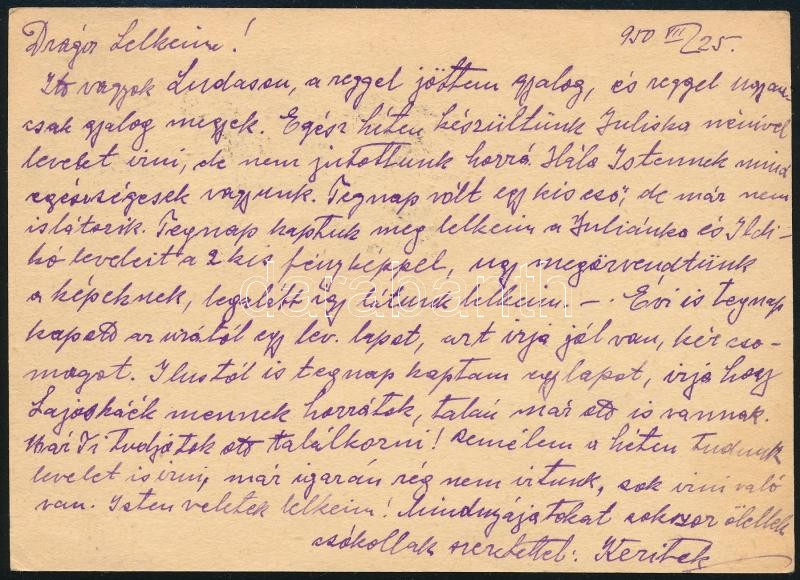 Drága Lelkeim! 950 VII/25.
Itt vagyok Ludason, a reggel jöttem gyalog, és reggel ugyan-
csak gyalog megyek. Egész héten készültünk Juliska nénivel
levelet irni, de nem jutottunk hozzá. Hála Istennek mind
egészségesek vagyunk. Tegnap vólt egy kis eső, de már nem
is látszik. Tegnap kaptuk meg lelkeim a Juliánka és Ildi-
kó leveleit a 2 kis fényképpel, ugy megörvendtünk
a képeknek, legalább igy látunk lelkeim –. Évi is tegnap
kapott az urától egy lev. lapot, azt irja jól van, kér cso-
magot. Ilustól is tegnap kaptam egy lapot, irja hogy
Lajoskáék mennek hozzátok, talán már ott is vannak.
Bár Ti tudjátok ott találkozni! Remélem a héten tudunk
levelet is irni, már igazán rég nem irtunk, sok irni való
van. Isten veletek lelkeim! Mindnyájatokat sokszor ölellek
csókollak szeretettel:
darabanth